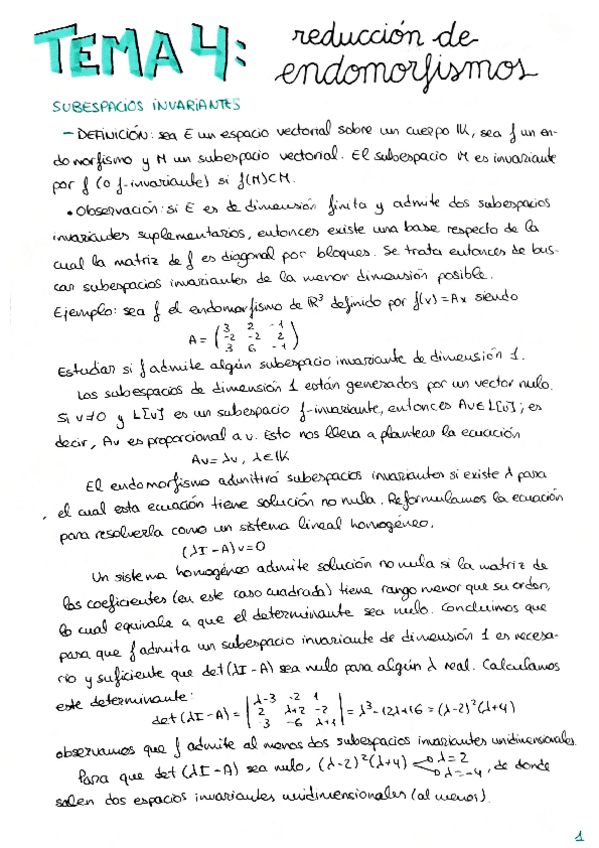 TEMA 4: reducción de
endomorfismos
SUBESPACIOS INVARIANTES
- DEFINICIÓN: sea E un espacio vectorial sobre un cuerpo IK, sea f un en-
domorfismo y M un subespacio vectorial. El subespacio M es invariante
por f (o f-invariante) si f(M)⊂M.
• Observación: si E es de dimensión finita y admite dos subespacios
invariantes suplementarios, entonces existe una base respecto de la
cual la matriz de f es diagonal por bloques. Se trata entonces de bus-
car subespacios invariantes de la menor dimensión posible.
Ejemplo: sea f el endomorfismo de IR³ definido por f(v)=Ax siendo
A = ( 3 2 -1
-2 -2 2
3 6 -1 )
Estudiar si f admite algún subespacio invariante de dimensión 1.
Los subespacios de dimensión 1 están generados por un vector nulo.
Si v≠0 y L[v] es un subespacio f-invariante, entonces Av∈L[v]; es
decir, Av es proporcional a v. Esto nos lleva a plantear la ecuación
Av=λv, λ∈IK
El endomorfismo admitirá subespacios invariantes si existe λ para
el cual esta ecuación tiene solución no nula. Reformulamos la ecuación
para resolverla como un sistema lineal homogéneo.
(λI-A)v=0
Un sistema homogéneo admite solución no nula si la matriz de
los coeficientes (en este caso cuadrada) tiene rango menor que su orden,
lo cual equivale a que el determinante sea nulo. Concluimos que
para que f admita un subespacio invariante de dimensión 1 es necesa-
rio y suficiente que det(λI-A) sea nulo para algún λ real. Calculamos
este determinante:
det(λI-A) = | λ-3 -2 1
2 λ+2 -2
-3 -6 λ+1 | = λ³-12λ+16 = (λ-2)²(λ+4)
observamos que f admite al menos dos subespacios invariantes unidimensionales.
Para que det(λI-A) sea nulo, (λ-2)²(λ+4) → λ=2
→ λ=-4, de donde
salen dos espacios invariantes unidimensionales (al menos).
1